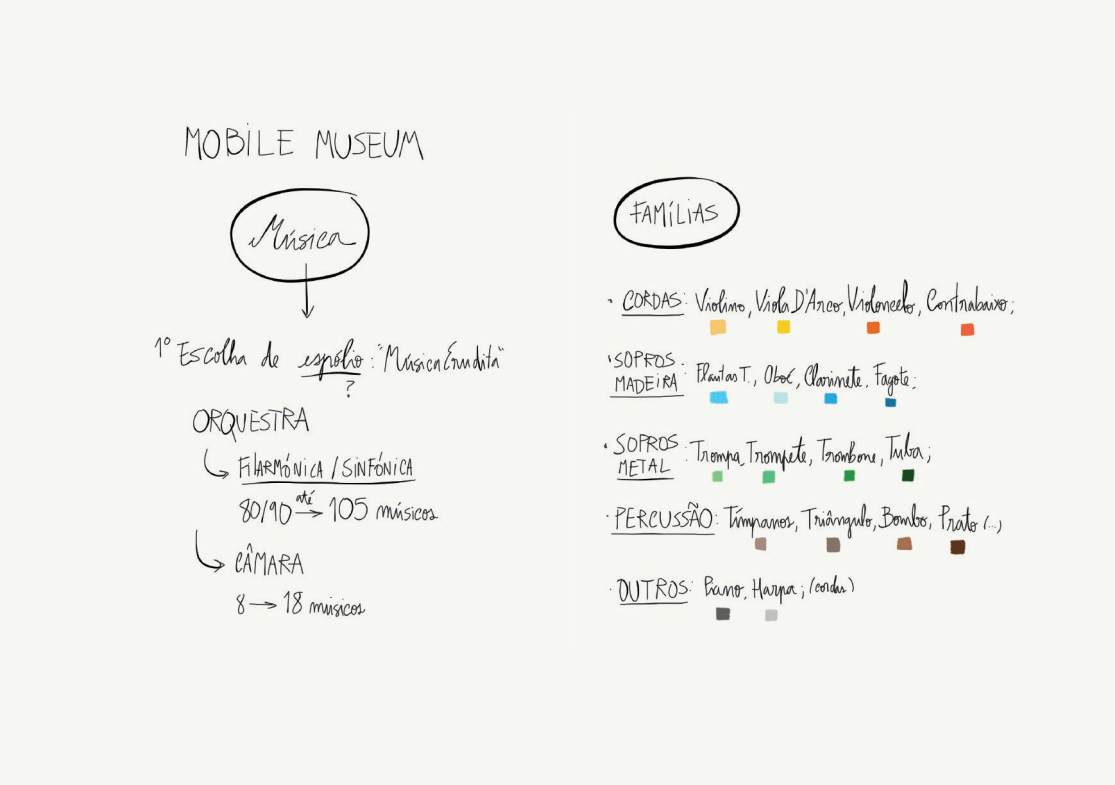 MOBILE MUSEUM
Música
1º Escolha de espólio: "Música Erudita"
?
ORQUESTRA
FILARMÓNICA / SINFÓNICA
80/90 até 105 músicos
CÂMARA
8 → 18 músicos
FAMÍLIAS
· CORDAS: Violino, Viola D'Arco, Violoncelo, Contrabaixo;
· SOPROS MADEIRA: Flautas T., Oboé, Clarinete, Fagote;
· SOPROS METAL: Trompa, Trompete, Trombone, Tuba;
· PERCUSSÃO: Tímpanos, Triângulo, Bombo, Prato (...)
· OUTROS: Piano, Harpa; (cordas)